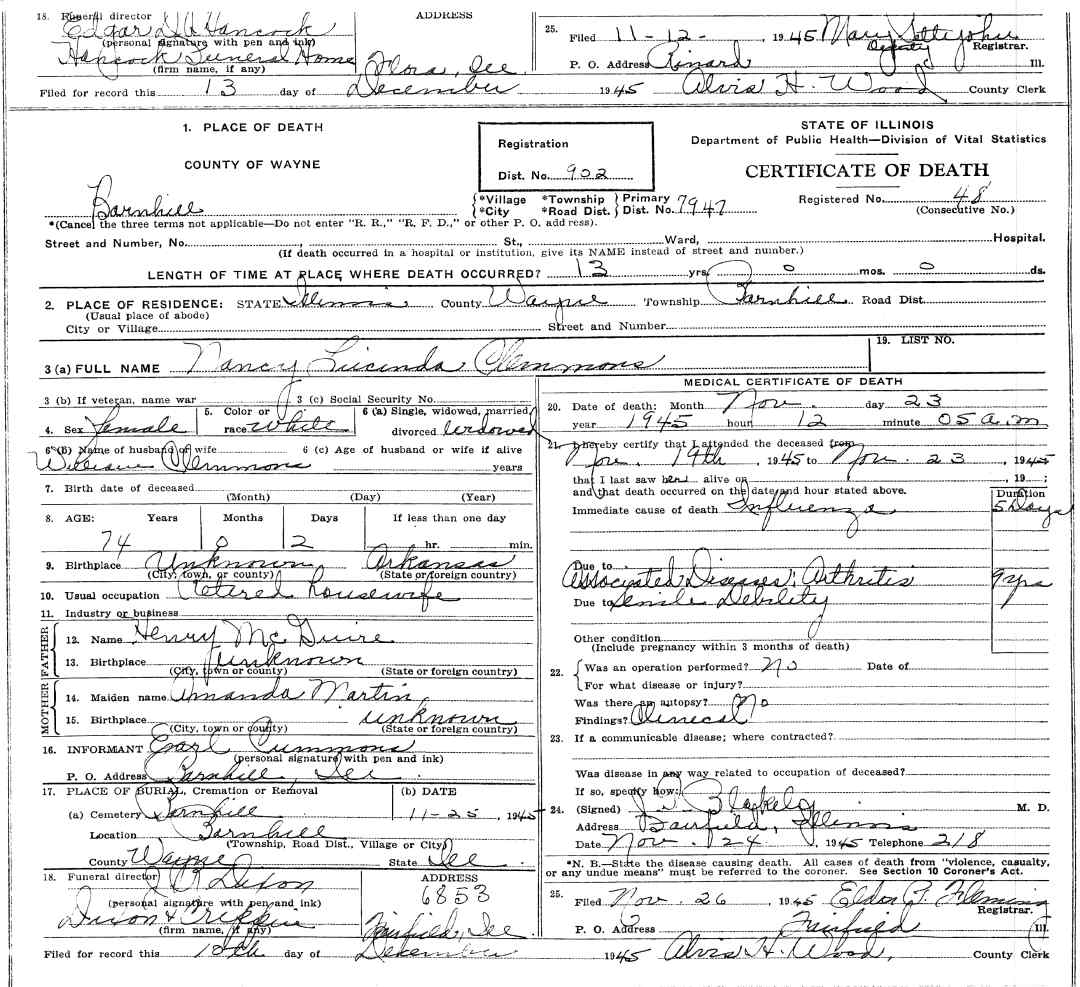 18. Funeral director ADDRESS
Edgar D. A. Hancock
(personal signature with pen and ink)
Hancock Funeral Home Flora, Ill
(firm name, if any)
25. Filed 11-12- 1945 Mary
Deputy Registrar.
P. O. Address Rinard Ill.
Filed for record this 13 day of December 1945 Alvis H. Wood County Clerk
1. PLACE OF DEATH
COUNTY OF WAYNE
Registration
Dist. No. 902
STATE OF ILLINOIS
Department of Public Health—Division of Vital Statistics
CERTIFICATE OF DEATH
Barnhill {*Village *Township } Primary
{*City *Road Dist. } Dist. No. 7947
Registered No. 48
(Consecutive No.)
*(Cancel the three terms not applicable—Do not enter "R. R.," "R. F. D.," or other P. O. address).
Street and Number, No. , St., Ward, Hospital.
(If death occurred in a hospital or institution, give its NAME instead of street and number.)
LENGTH OF TIME AT PLACE WHERE DEATH OCCURRED? 13 yrs. 0 mos. 0 ds.
2. PLACE OF RESIDENCE: STATE Illinois County Wayne Township Barnhill Road Dist.
(Usual place of abode)
City or Village Street and Number
3 (a) FULL NAME Nancy Lucinda Clemmons
19. LIST NO.
3 (b) If veteran, name war 3 (c) Social Security No.
4. Sex female 5. Color or race White 6 (a) Single, widowed, married, divorced Widowed
6 (b) Name of husband or wife 6 (c) Age of husband or wife if alive
William Clemmons years
7. Birth date of deceased
(Month) (Day) (Year)
8. AGE: Years Months Days If less than one day
74 0 2 hr. min.
9. Birthplace Unknown Arkansas
(City, town, or county) (State or foreign country)
10. Usual occupation Retired housewife
11. Industry or business
FATHER
12. Name Henry McGuire
13. Birthplace Unknown
(City, town or county) (State or foreign country)
MOTHER
14. Maiden name Amanda Martin
15. Birthplace unknown
(City, town or county) (State or foreign country)
16. INFORMANT Earl Cummons
(personal signature with pen and ink)
P. O. Address Barnhill, Ill
17. PLACE OF BURIAL, Cremation or Removal (b) DATE
(a) Cemetery Barnhill 11-25, 1945
Location Barnhill
(Township, Road Dist., Village or City)
County Wayne State Ill
18. Funeral director ADDRESS
Dixon 6853
(personal signature with pen and ink)
Dixon & Crippin Fairfield, Ill
(firm name, if any)
MEDICAL CERTIFICATE OF DEATH
20. Date of death: Month Nov day 23
year 1945 hour 12 minute 05 a.m
21. I hereby certify that I attended the deceased from
Nov. 19th, 1945 to Nov. 23, 1945
that I last saw her alive on , 19 ;
and that death occurred on the date and hour stated above.
Duration
Immediate cause of death Influenza 5 Days
Due to
Associated Diseases; Arthritis 9 yrs
Due to Senile Debility
Other condition
(Include pregnancy within 3 months of death)
22. {Was an operation performed? No Date of
{For what disease or injury?
Was there an autopsy? No
Findings? Clinecal
23. If a communicable disease; where contracted?
Was disease in any way related to occupation of deceased?
If so, specify how:
24. (Signed) Blakely M. D.
Address Fairfield, Illinois
Date Nov. 24, 1945 Telephone 218
*N. B.—State the disease causing death. All cases of death from "violence, casualty,
or any undue means" must be referred to the coroner. See Section 10 Coroner's Act.
25. Filed Nov. 26 1945 Eldon P. Fleming
Registrar.
P. O. Address Fairfield Ill.
Filed for record this 10th day of December 1945 Alvis H. Wood, County Clerk